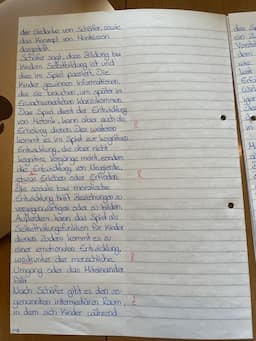 der Gedanke von Schäfer, sowie
das Konzept von
dargestellt.
Schäfer sagt, dass Bildung bei
Kindern Selbstbildung ist und
dies im Spiel passiert. Die
Kinder gewinnen Informationen,
die sie brauchen, um später im
klarzukommen.
Das Spiel dient der Entwicklung
von Motorik, kann aber auch die
Erholung dienen. Des weiteren
kommt es im Spiel zur kognitiven
Entwicklung, die aber nicht
kognitive Vorgänge meint, sondern
die Entwicklung von Neugierde,
etwas Erleben oder Erfinden.
Die soziale bzw. moralische
Entwicklung hilft Beziehungen zu
vergegenwärtigen oder zu bilden.
Außerdem kann das Spiel als
Selbstheilungsfunktion für Kinder
dienen. Zudem kommt es zu
einer emotionalen Entwicklung,
worunter der menschliche
Umgang oder das Miteinander
fällt.
Nach Schäfer gibt es den so-
genannten intermediären Raum,
in dem sich Kinder während